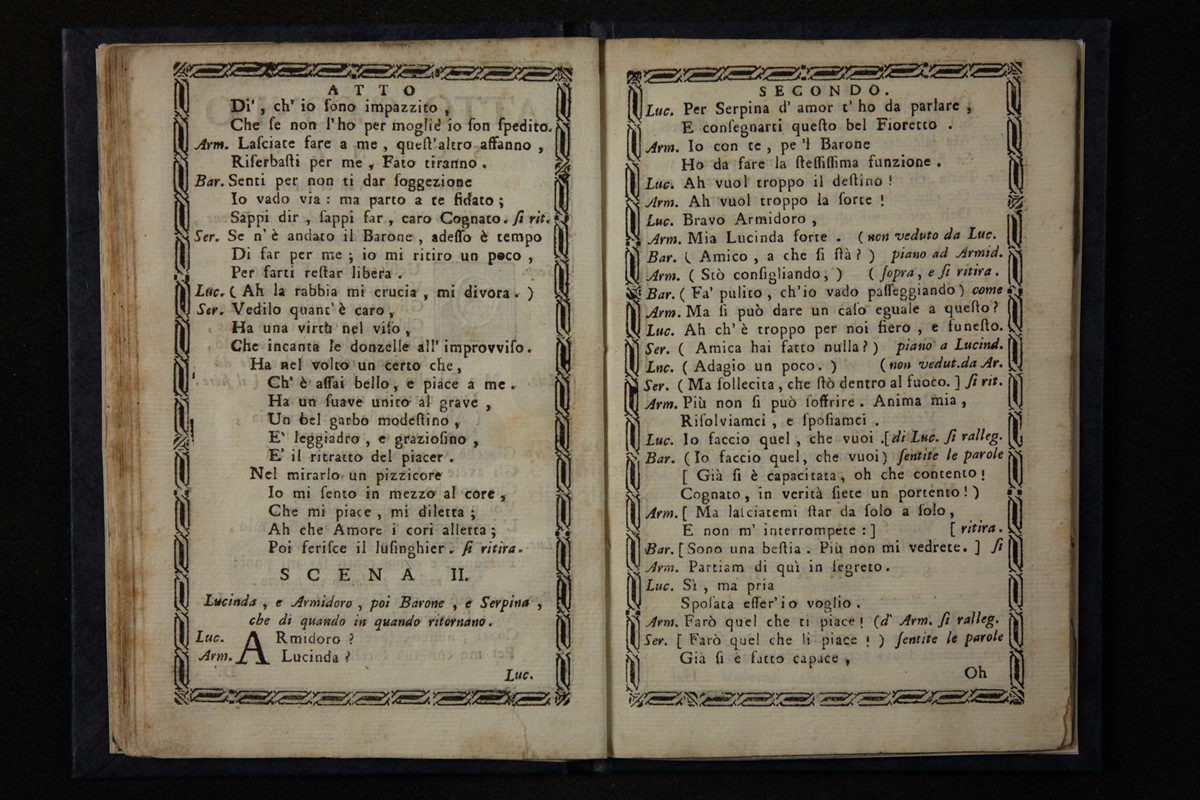 ATTO
Di', ch' io ſono impazzito,
Che ſe non l'ho per moglie io ſon ſpedito.
Arm. Laſciate fare a me, queſt'altro affanno,
Riſerbaſti per me, Fato tiranno.
Bar. Senti per non ti dar ſoggezione
Io vado via: ma parto a te fidato;
Sappi dir, ſappi far, caro Cognato. ſi rit.
Ser. Se n'è andato il Barone, adeſſo è tempo
Di far per me; io mi ritiro un poco,
Per farti reſtar libera.
Luc. ( Ah la rabbia mi crucia, mi divora. )
Ser. Vedilo quant'è caro,
Ha una virtù nel viſo,
Che incanta le donzelle all' improvviſo.
Ha nel volto un certo che,
Ch' è aſſai bello, e piace a me.
Ha un ſuave unito al grave,
Un bel garbo modeſtino,
E' leggiadro, e grazioſino,
E' il ritratto del piacer.
Nel mirarlo un pizzicore
Io mi ſento in mezzo al core,
Che mi piace, mi diletta;
Ah che Amore i cori alletta;
Poi feriſce il luſinghier. ſi ritira.
SCENA II.
Lucinda, e Armidoro, poi Barone, e Serpina,
che di quando in quando ritornano.
Luc. ARmidoro?
Arm. Lucinda?
Luc.
SECONDO.
Luc. Per Serpina d' amor t' ho da parlare,
E conſegnarti queſto bel Fioretto.
Arm. Io con te, pe 'l Barone
Ho da fare la ſteſſiſſima funzione.
Luc. Ah vuol troppo il deſtino!
Arm. Ah vuol troppo la ſorte!
Luc. Bravo Armidoro,
Arm. Mia Lucinda forte. (non veduto da Luc.
Bar. ( Amico, a che ſi ſtà? ) piano ad Armid.
Arm. ( Stò conſigliando; ) ( ſopra, e ſi ritira.
Bar. ( Fa' pulito, ch'io vado paſſeggiando) come
Arm. Ma ſi può dare un caſo eguale a queſto?
Luc. Ah ch'è troppo per noi fiero, e funeſto.
Ser. ( Amica hai fatto nulla?) piano a Lucind.
Lnc. ( Adagio un poco. ) (non vedut.da Ar.
Ser. ( Ma ſollecita, che ſtò dentro al fuoco. ] ſi rit.
Arm. Più non ſi può ſoffrire. Anima mia,
Riſolviamci, e ſpoſiamci.
Luc. Io faccio quel, che vuoi. [di Luc. ſi ralleg.
Bar. (Io faccio quel, che vuoi) ſentite le parole
[ Già ſi è capacitata, oh che contento!
Cognato, in verità ſiete un portento!)
Arm. [ Ma laſciatemi ſtar da ſolo a ſolo,
E non m' interrompete:] [ ritira.
Bar. [Sono una beſtia. Più non mi vedrete. ] ſi
Arm. Partiam di quì in ſegreto.
Luc. Sì, ma pria
Spoſata eſſer'io voglio.
Arm. Farò quel che ti piace! (d' Arm. ſi ralleg.
Ser. [ Farò quel che li piace! ) ſentite le parole
Già ſi è fatto capace,
Oh